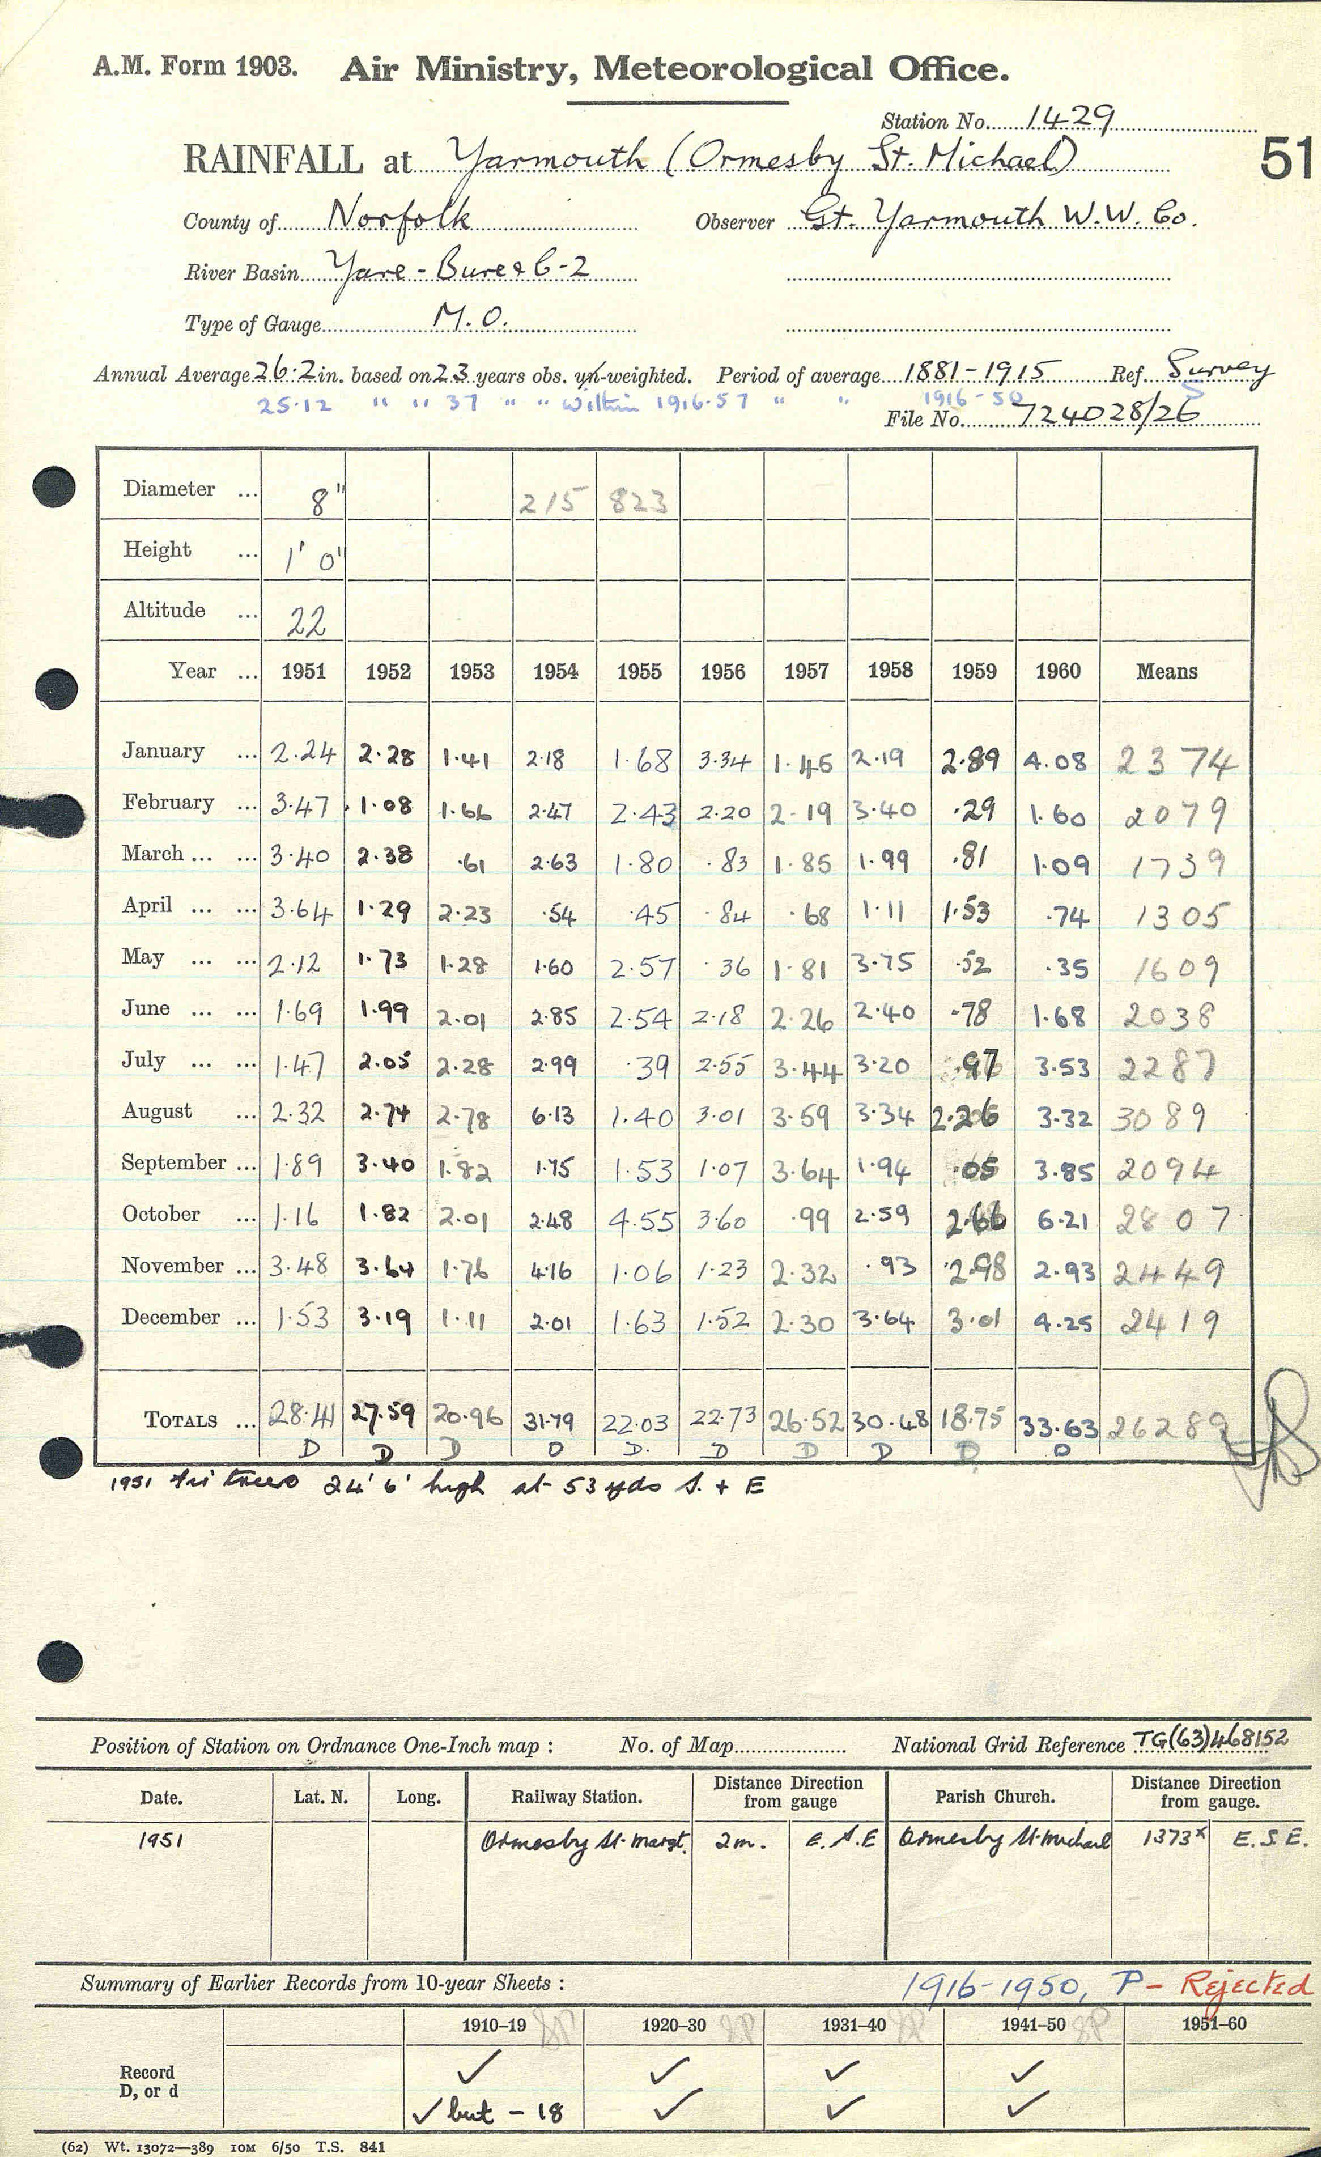 A.M. Form 1903. Air Ministry, Meteorological Office.
Station No. 1429
RAINFALL at Yarmouth (Ormesby St. Michael) 51
County of Norfolk Observer Gt. Yarmouth W.W. Co.
River Basin Yare - Bure & C-2
Type of Gauge M.O.
Annual Average 26.2 in. based on 23 years obs. un-weighted. Period of average 1881-1915 Ref. Survey
25.12 " " 37 " " Within 1916-57 " " 1916-50 S
File No. 724028/26
Diameter ... 8" 215 823
Height ... 1' 0"
Altitude ... 22
Year ... 1951 1952 1953 1954 1955 1956 1957 1958 1959 1960 Means
January ... 2.24 2.28 1.41 2.18 1.68 3.34 1.45 2.19 2.89 4.08 2374
February ... 3.47 1.08 1.66 2.47 2.43 2.20 2.19 3.40 .29 1.60 2079
March ... ... 3.40 2.38 .61 2.63 1.80 .83 1.85 1.99 .81 1.09 1739
April ... ... 3.64 1.29 2.23 .54 .45 .84 .68 1.11 1.53 .74 1305
May ... ... 2.12 1.73 1.28 1.60 2.57 .36 1.81 3.75 .52 .35 1609
June ... ... 1.69 1.99 2.01 2.85 2.54 2.18 2.26 2.40 .78 1.68 2038
July ... ... 1.47 2.05 2.28 2.99 .39 2.55 3.44 3.20 .97 3.53 2287
August ... 2.32 2.74 2.78 6.13 1.40 3.01 3.59 3.34 2.26 3.32 3089
September ... 1.89 3.40 1.82 1.75 1.53 1.07 3.64 1.94 .05 3.85 2094
October ... 1.16 1.82 2.01 2.48 4.55 3.60 .99 2.59 2.66 6.21 2807
November ... 3.48 3.64 1.76 4.16 1.06 1.23 2.32 .93 2.98 2.93 2449
December ... 1.53 3.19 1.11 2.01 1.63 1.52 2.30 3.64 3.01 4.25 2419
TOTALS ... 28.41 27.59 20.96 31.79 22.03 22.73 26.52 30.48 18.75 33.63 26289
D D D D D. D D D D D
1951 Fir trees 24' 6" high at 53 yds S. + E
Position of Station on Ordnance One-Inch map : No. of Map National Grid Reference TG(63)468152
Date. Lat. N. Long. Railway Station. Distance Direction from gauge Parish Church. Distance Direction from gauge.
1951 Ormesby St. Margt. 2m. E.S.E Ormesby St. Michael 1373ˣ E.S.E.
Summary of Earlier Records from 10-year Sheets : 1916-1950, P - Rejected
1910-19 1920-30 1931-40 1941-50 1951-60
Record ✓ ✓ ✓ ✓
D, or d ✓ but - 18 ✓ ✓ ✓
(62) Wt. 13072—389 10M 6/50 T.S. 841